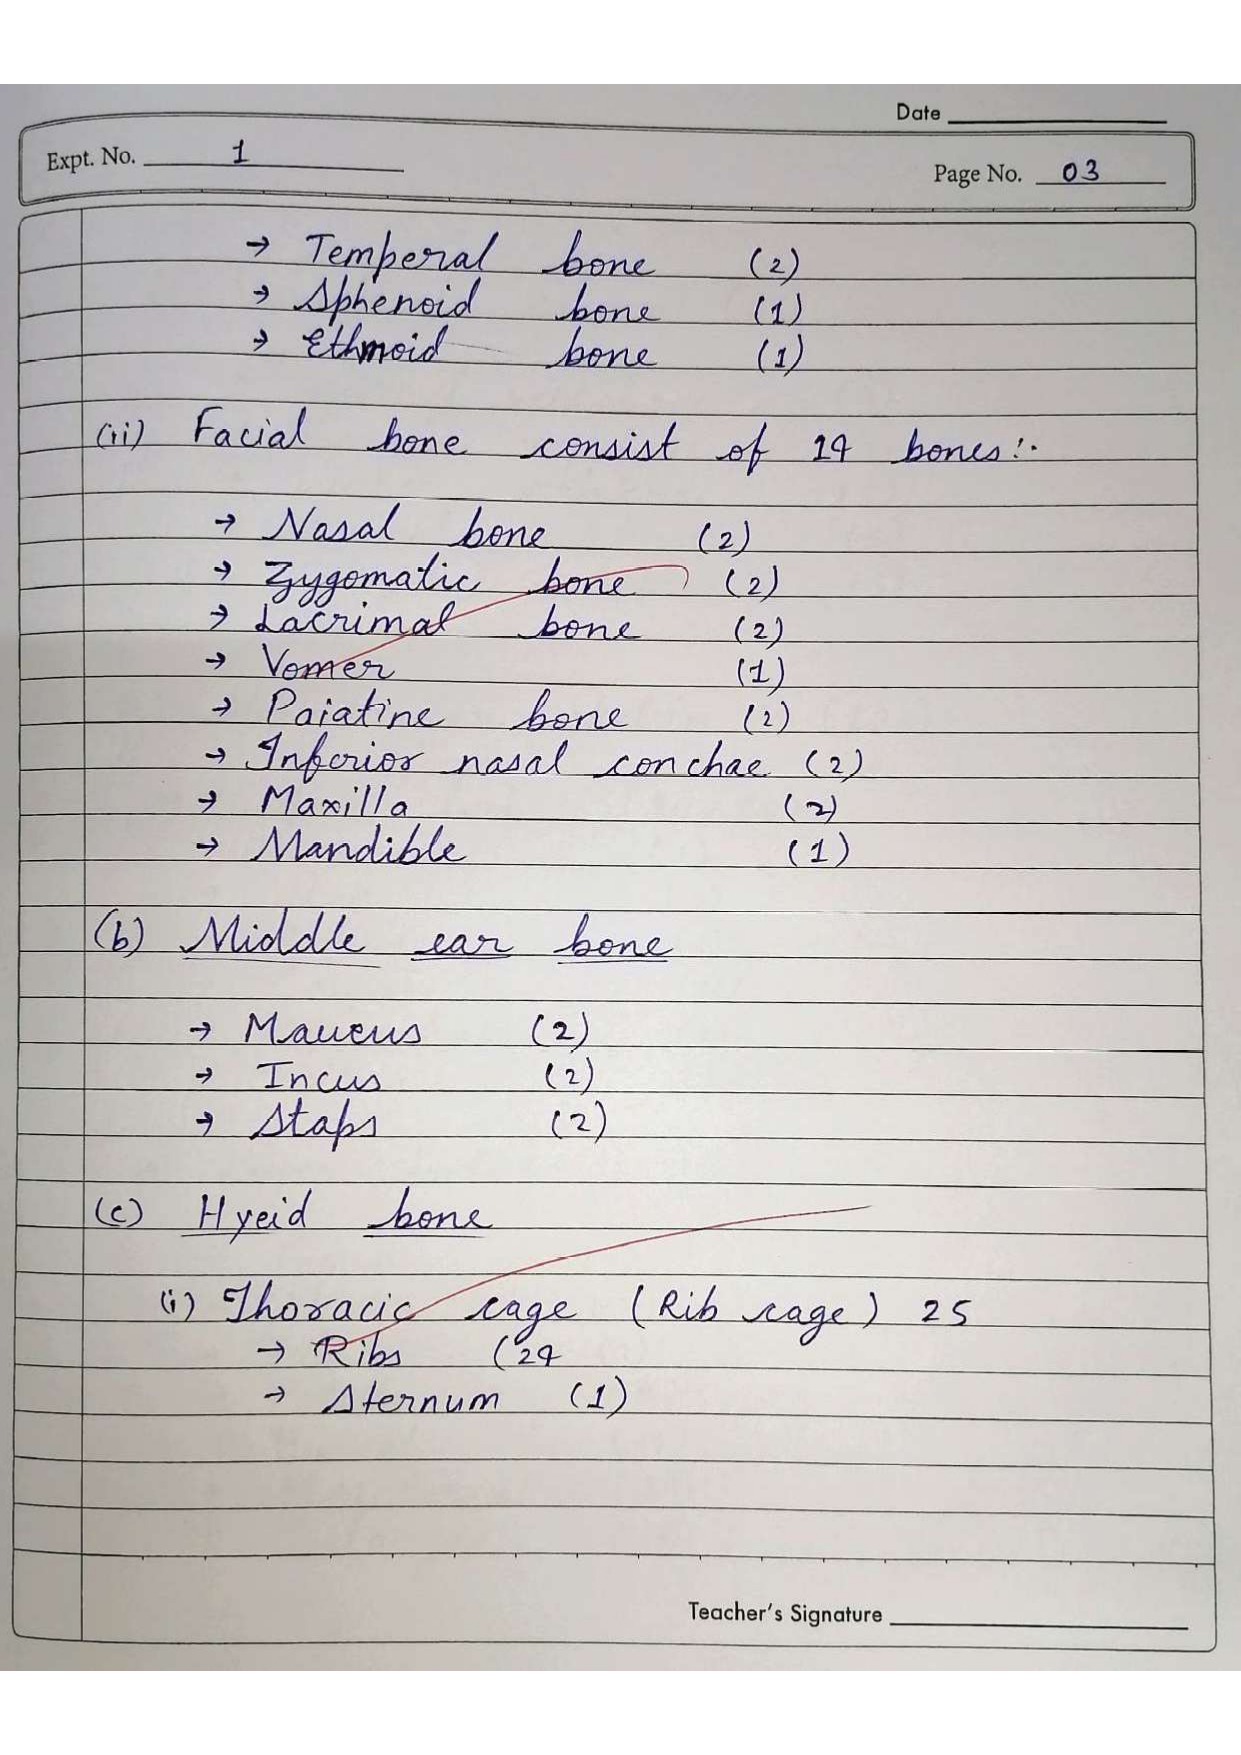 Date
Expt. No. 1
Page No. 03
→ Temperal bone (2)
→ Sphenoid bone (1)
→ Ethmoid bone (1)
(ii) Facial bone consist of 14 bones:-
→ Nasal bone (2)
→ Zygomatic bone (2)
→ Lacrimal bone (2)
→ Vomer (1)
→ Paiatine bone (2)
→ Inferior nasal conchae (2)
→ Maxilla (2)
→ Mandible (1)
(b) Middle ear bone
→ Maueus (2)
→ Incus (2)
→ Staps (2)
(c) Hyeid bone
(i) Thoracic cage (Rib cage) 25
→ Ribs (24
→ Sternum (1)
Teacher's Signature